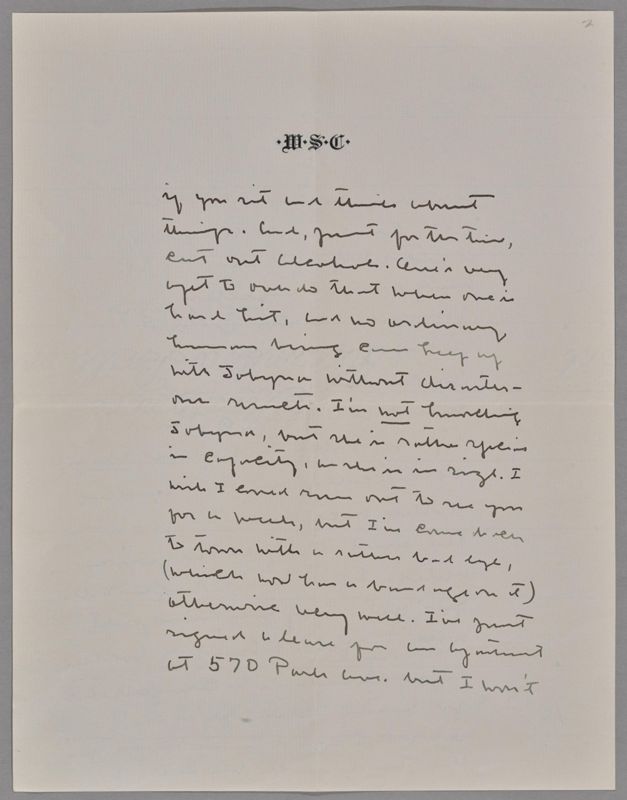 2
·W·S·C·
if you sit and think about
things. And, just for this time,
cut out alcohol. One is very
apt to overdo that when one is
hard hit, and no ordinary
human being can keep up
with Jobyna without disastr-
ous results. I'm not knocking
Jobyna, but she is rather special
in capacity, as she is in size. I
wish I could run out to see you
for a week, but I've come back
to town with a rather bad eye,
(which now has a bandage on it)
otherwise very well. I've just
signed a lease for an apartment
at 570 Park Ave. but I won't